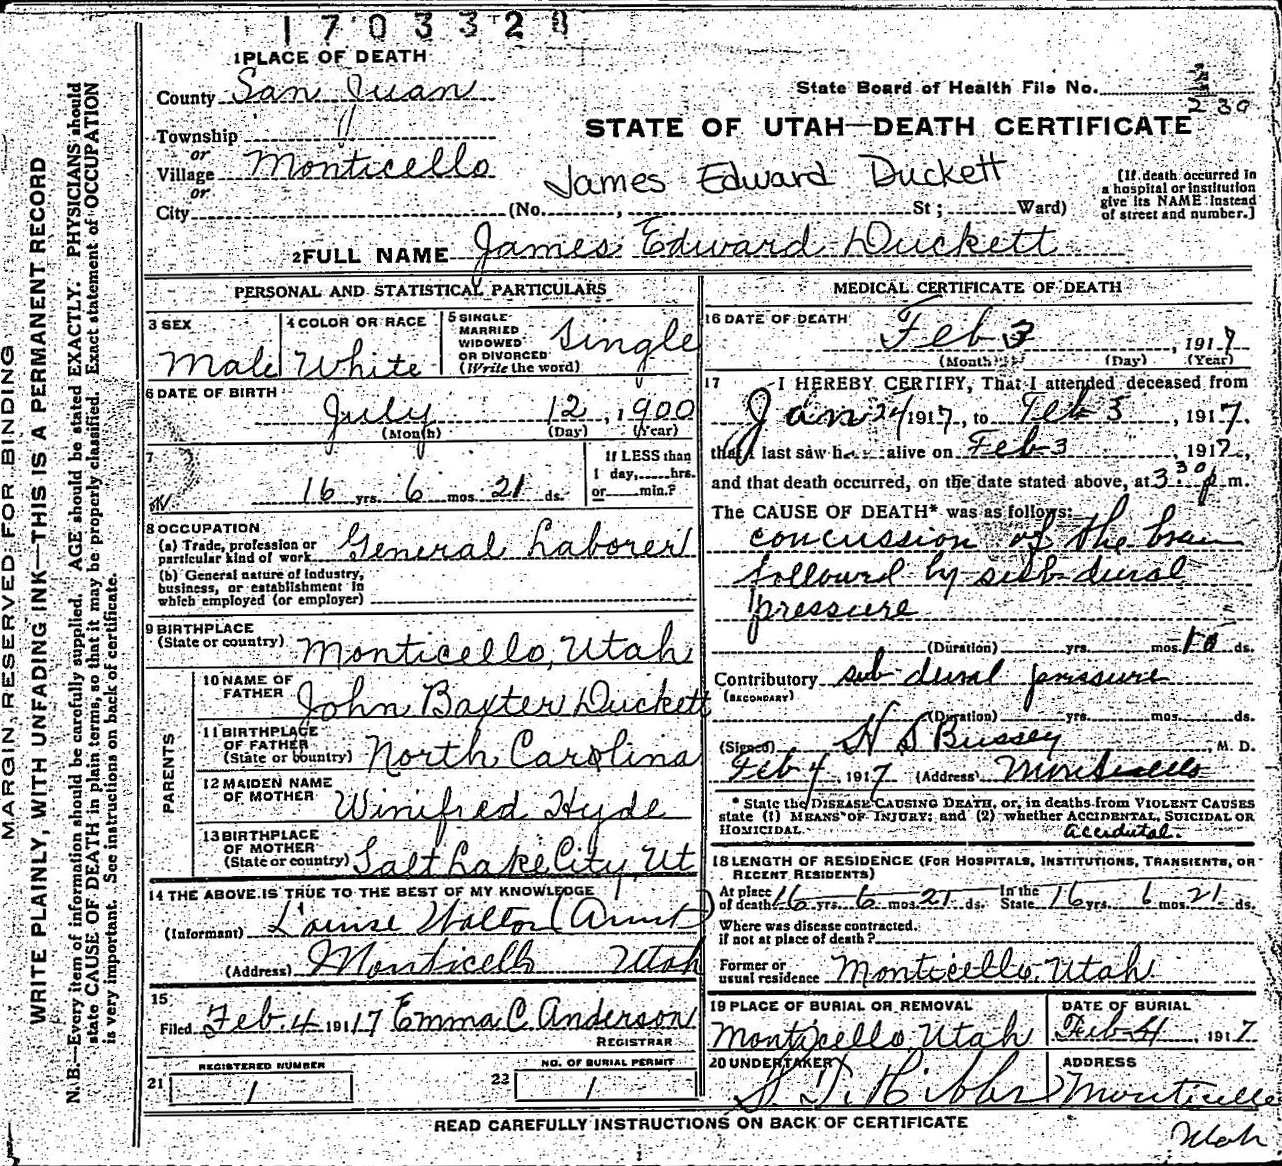 1703328
1 PLACE OF DEATH
County San Juan
State Board of Health File No.
230
Township
STATE OF UTAH—DEATH CERTIFICATE
or
Village Monticello
or
James Edward Duckett
(If death occurred in a hospital or institution give its NAME instead of street and number.]
City (No. , St; Ward)
2 FULL NAME James Edward Duckett
PERSONAL AND STATISTICAL PARTICULARS
3 SEX
Male
4 COLOR OR RACE
White
5 SINGLE
MARRIED
WIDOWED
OR DIVORCED
(Write the word)
Single
6 DATE OF BIRTH
July 12, 1900
(Month) (Day) (Year)
7
16 yrs. 6 mos. 21 ds.
If LESS than
1 day, hrs.
or min.?
8 OCCUPATION
(a) Trade, profession or
particular kind of work General Laborer
(b) General nature of industry,
business, or establishment in
which employed (or employer)
9 BIRTHPLACE
(State or country) Monticello, Utah
PARENTS
10 NAME OF
FATHER John Baxter Duckett
11 BIRTHPLACE
OF FATHER
(State or country) North Carolina
12 MAIDEN NAME
OF MOTHER Winifred Hyde
13 BIRTHPLACE
OF MOTHER
(State or country) Salt Lake City, Ut
14 THE ABOVE IS TRUE TO THE BEST OF MY KNOWLEDGE
(Informant) Louise Walton (Aunt)
(Address) Monticello Utah
15
Filed Feb. 4 1917 Emma C. Anderson
REGISTRAR
REGISTERED NUMBER
21 1
NO. OF BURIAL PERMIT
22 1
MEDICAL CERTIFICATE OF DEATH
16 DATE OF DEATH
Feb 3, 1917
(Month) (Day) (Year)
17 I HEREBY CERTIFY, That I attended deceased from
Jan 24 1917, to Feb 3, 1917,
that I last saw h alive on Feb 3, 1917,
and that death occurred, on the date stated above, at 3 30 p m.
The CAUSE OF DEATH* was as follows:
concussion of the brain
followed by sub-dural
pressure
(Duration) yrs. mos. 10 ds.
Contributory sub-dural pressure
(SECONDARY)
(Duration) yrs. mos. ds.
(Signed) H S Bussey, M. D.
Feb 4, 1917 (Address) Monticello
* State the DISEASE CAUSING DEATH, or, in deaths from VIOLENT CAUSES
state (1) MEANS OF INJURY; and (2) whether ACCIDENTAL, SUICIDAL OR
HOMICIDAL. accidental.
18 LENGTH OF RESIDENCE (FOR HOSPITALS, INSTITUTIONS, TRANSIENTS, OR
RECENT RESIDENTS)
At place
of death 16 yrs. 6 mos. 21 ds. In the
State 16 yrs. 6 mos. 21 ds.
Where was disease contracted.
if not at place of death?
Former or
usual residence Monticello, Utah
19 PLACE OF BURIAL OR REMOVAL
Monticello, Utah
DATE OF BURIAL
Feb 4, 1917
20 UNDERTAKER
ADDRESS
Monticello
Utah
READ CAREFULLY INSTRUCTIONS ON BACK OF CERTIFICATE
MARGIN RESERVED FOR BINDING
WRITE PLAINLY, WITH UNFADING INK—THIS IS A PERMANENT RECORD
N. B.—Every item of information should be carefully supplied. AGE should be stated EXACTLY. PHYSICIANS should
state CAUSE OF DEATH in plain terms, so that it may be properly classified. Exact statement of OCCUPATION
is very important. See instructions on back of certificate.